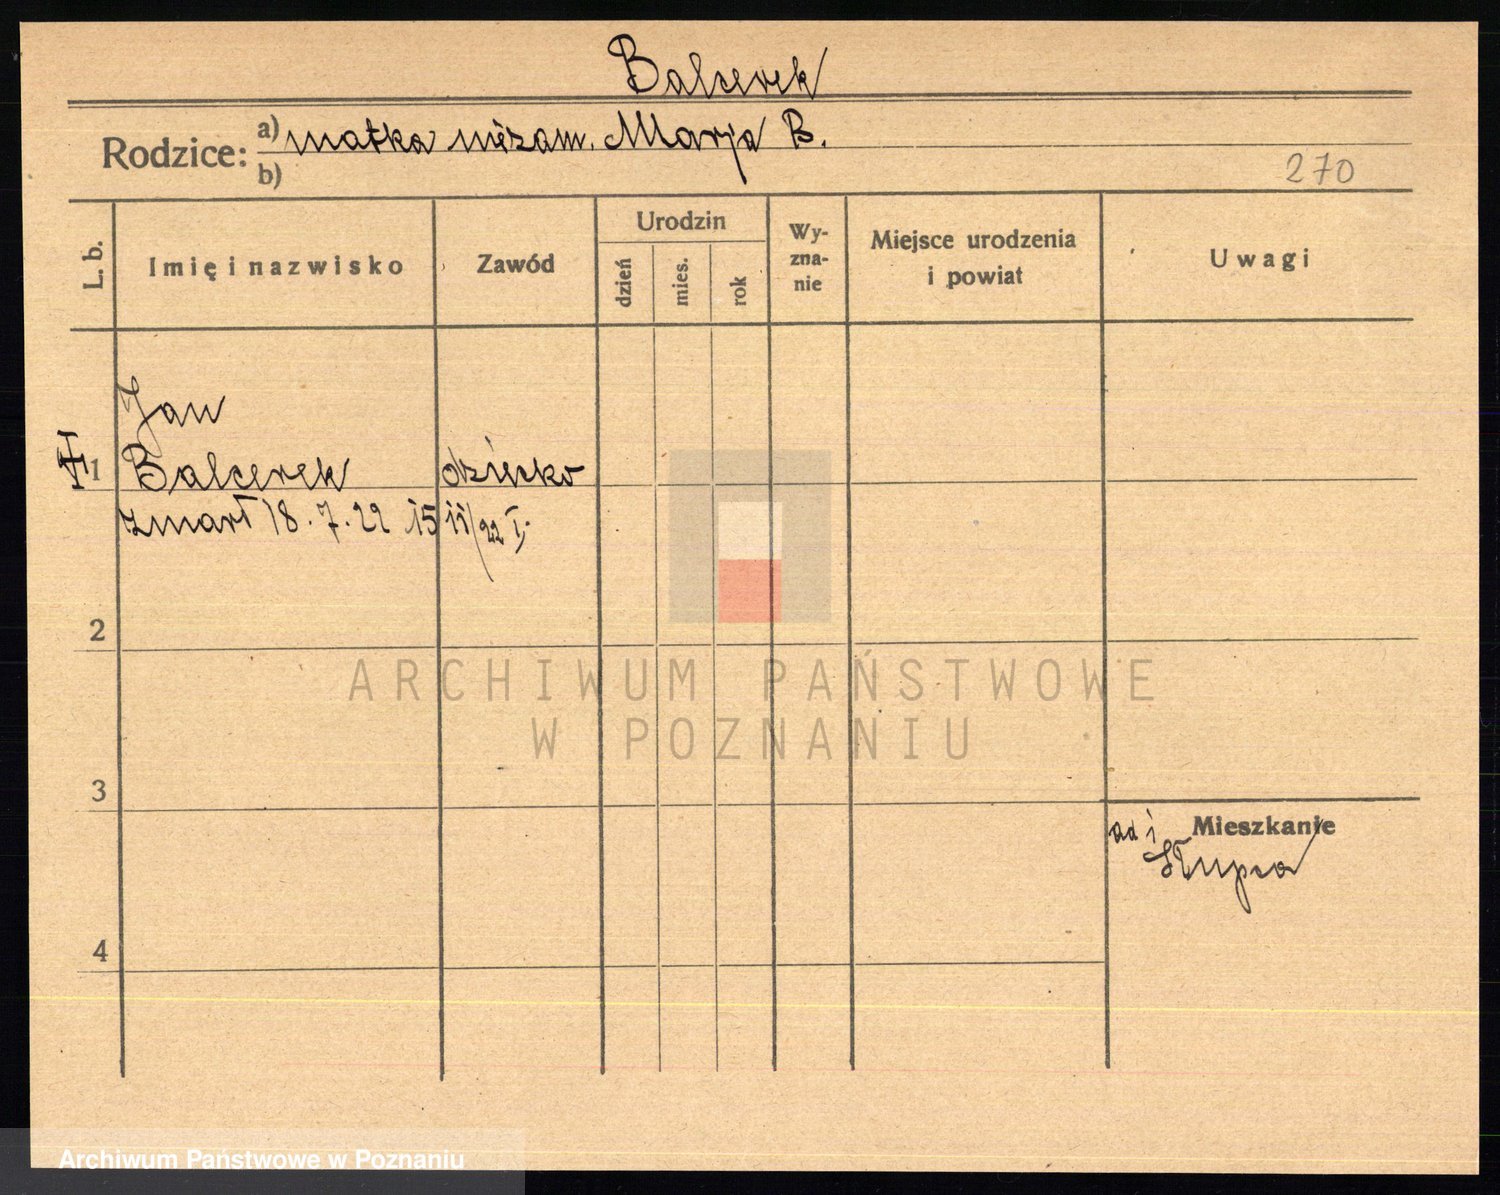 Balcerek
Rodzice: a) matka niezam. Marja B.
b)
270
L. b.
Imię i nazwisko
Zawód
Urodzin
dzień
mies.
rok
Wy-
zna-
nie
Miejsce urodzenia
i powiat
Uwagi
Jan
1 Balcerek dziecko
zmarł 18. 7. 22 15 ii/22 I.
2
ARCHIWUM PAŃSTWOWE
W POZNANIU
3
Mieszkanie
ad i
Słupia
4
Archiwum Państwowe w Poznaniu